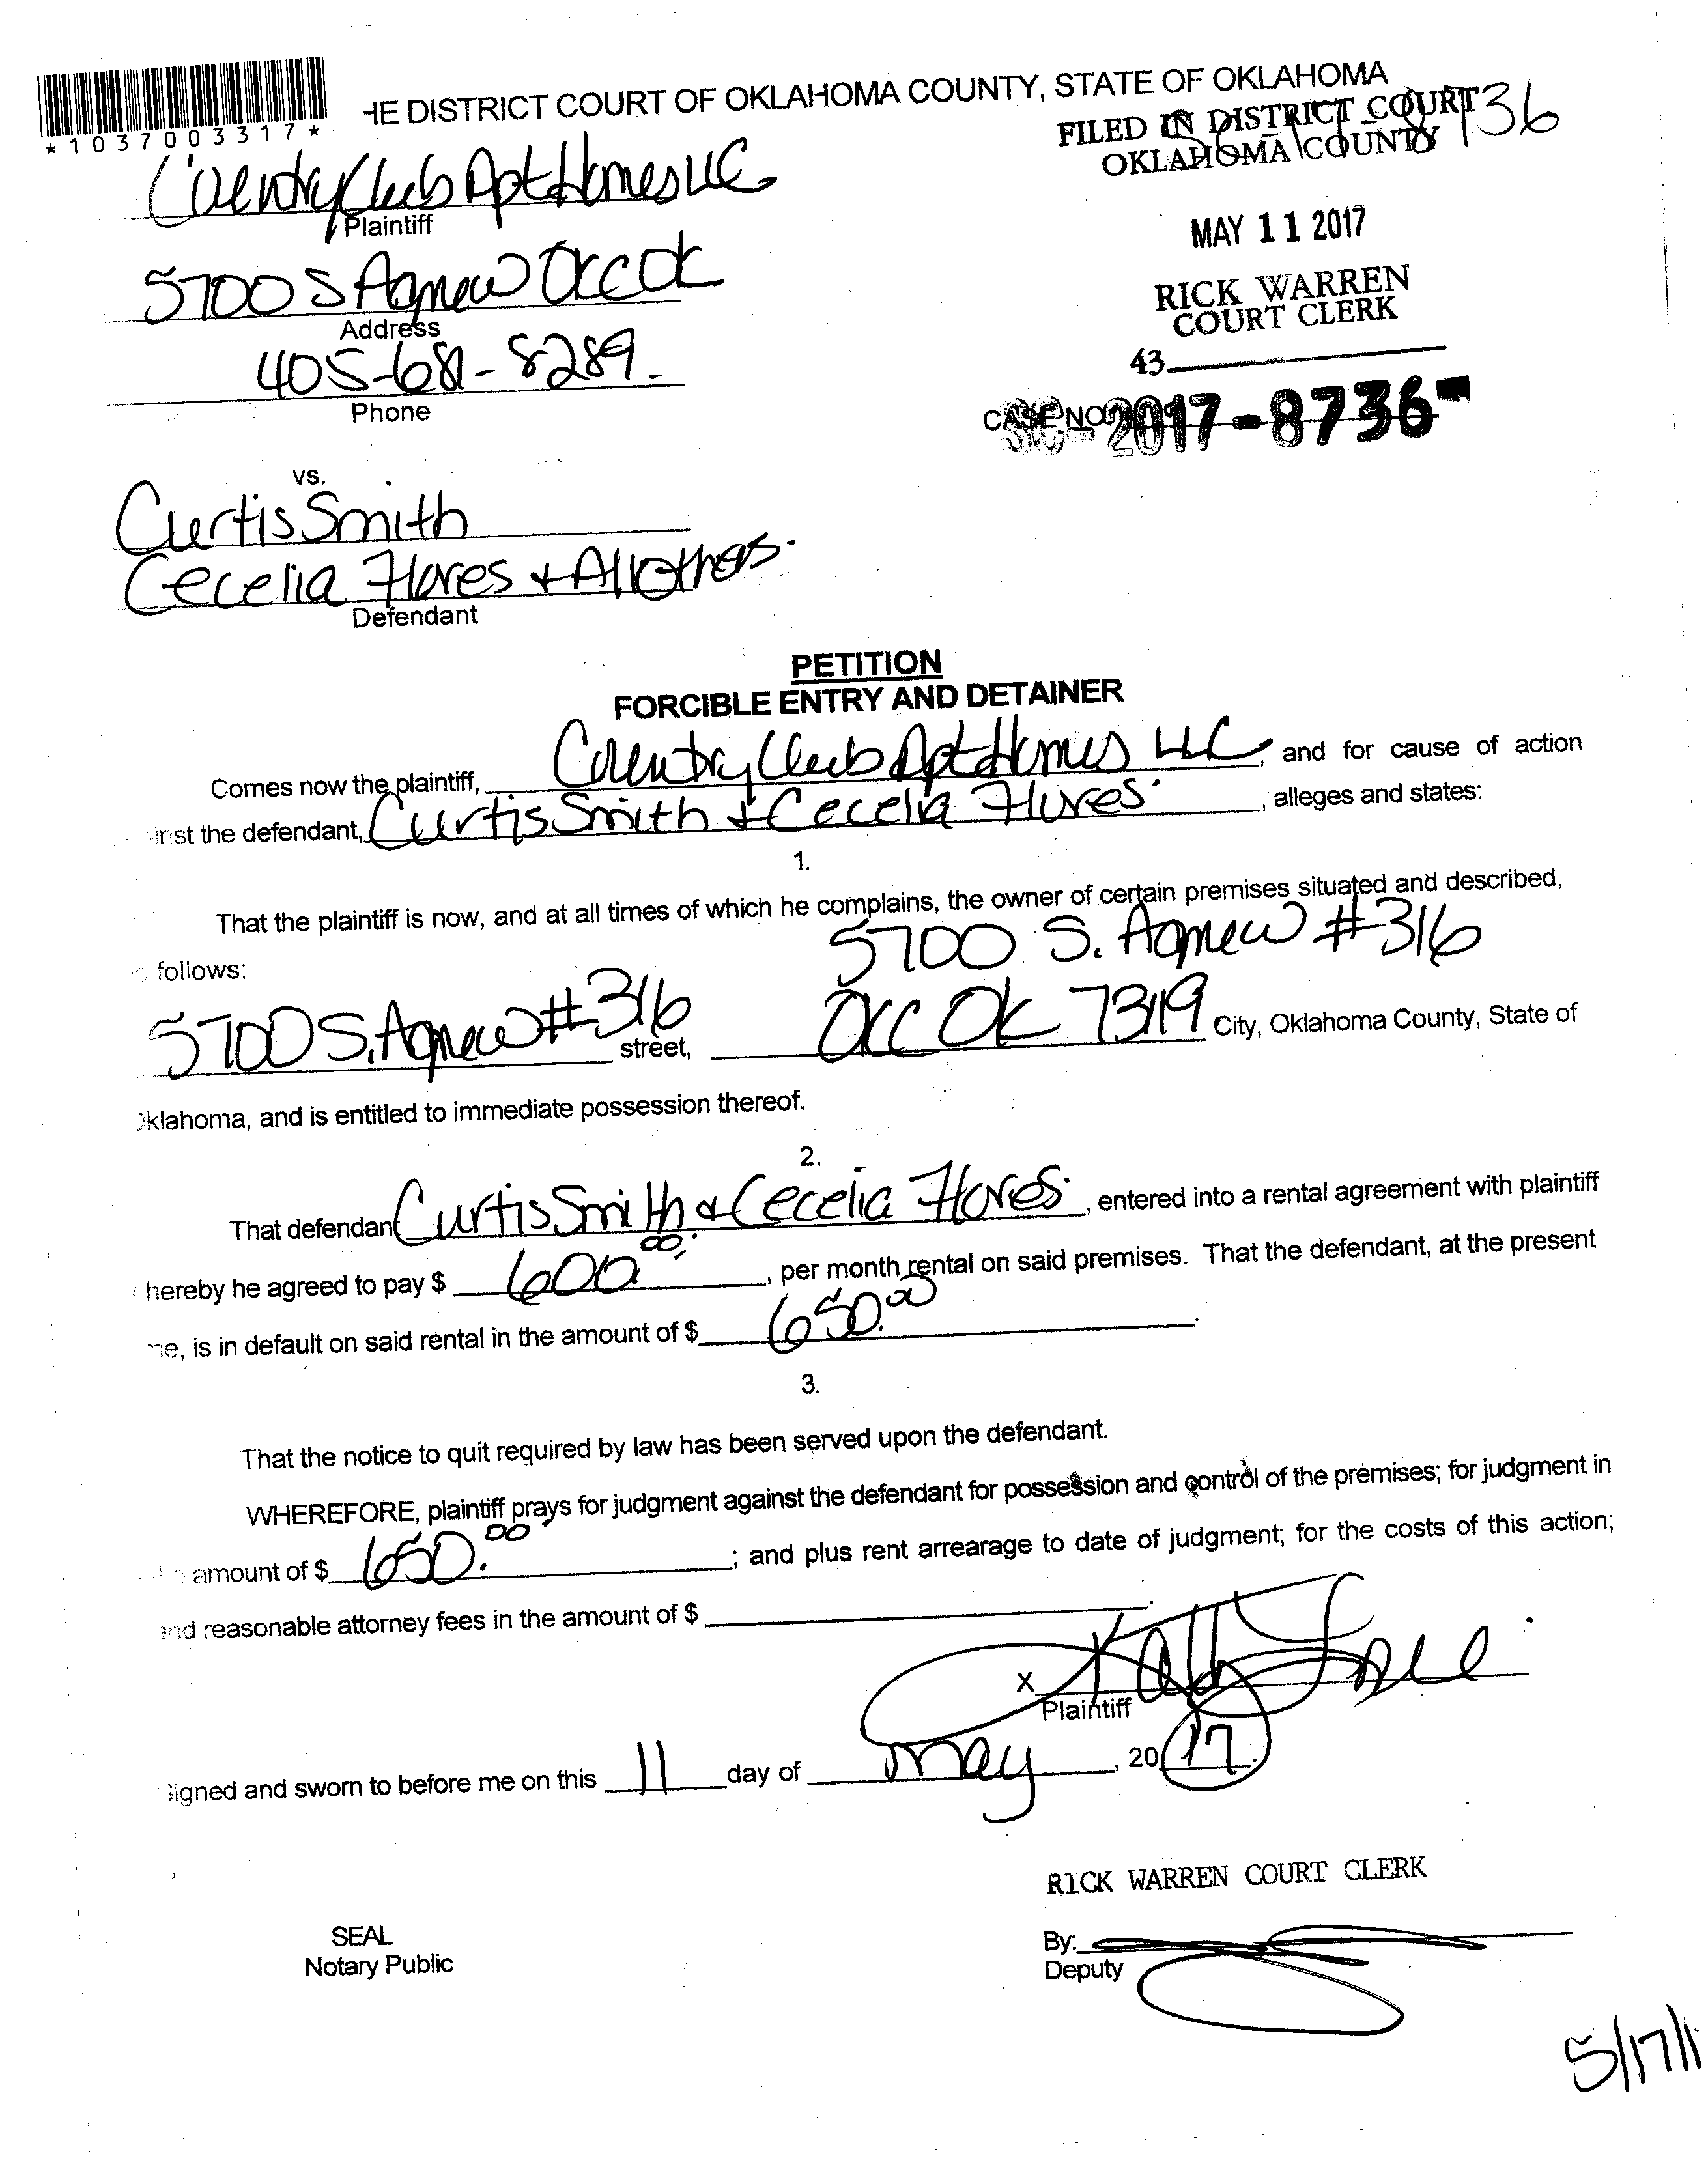 *1037003317*
HE DISTRICT COURT OF OKLAHOMA COUNTY, STATE OF OKLAHOMA
FILED IN DISTRICT COURT
OKLAHOMA COUNTY
Club Apt Homes LLC
Plaintiff
MAY 11 2017
5700 S Agnew OKC OK
Address
RICK WARREN
COURT CLERK
405-681-8289
Phone
43
CASE NO.
SC-2017-8736
vs.
Curtis Smith
Cecelia Flores + All others.
Defendant
PETITION
FORCIBLE ENTRY AND DETAINER
Comes now the plaintiff, Club Apt Homes LLC, and for cause of action
inst the defendant, Curtis Smith & Cecelia Flores, alleges and states:
1.
That the plaintiff is now, and at all times of which he complains, the owner of certain premises situated and described,
s follows:
5700 S. Agnew #316
5700 S. Agnew #316 street, OKC OK 73119 City, Oklahoma County, State of
Oklahoma, and is entitled to immediate possession thereof.
2.
That defendant Curtis Smith & Cecelia Flores, entered into a rental agreement with plaintiff
hereby he agreed to pay $ 600.00, per month rental on said premises. That the defendant, at the present
me, is in default on said rental in the amount of $ 650.00.
3.
That the notice to quit required by law has been served upon the defendant.
WHEREFORE, plaintiff prays for judgment against the defendant for possession and control of the premises; for judgment in
amount of $ 650.00; and plus rent arrearage to date of judgment; for the costs of this action;
and reasonable attorney fees in the amount of $
X
Plaintiff
signed and sworn to before me on this 11 day of May, 20 17.
RICK WARREN COURT CLERK
SEAL
Notary Public
By:
Deputy
5/17/1